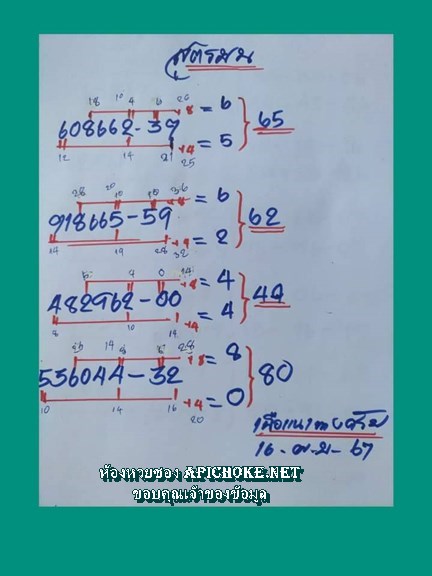 สูตรบน
18 10 4 6 26
+8 = 6
608662-39
65
+4 = 5
12 14 21 25
28 20 10 15 36
+8 = 6
918665-59
62
+4 = 2
14 19 28 32
9 0 14
+8 = 4
482962-00
44
+4 = 4
8 10 14
26 14 28
+8 = 8
536044-32
80
+4 = 0
10 14 16 20
16-พ.ย-67
ห้องหวยซอง APICHOKE.NET
ขอบคุณเจ้าของข้อมูล